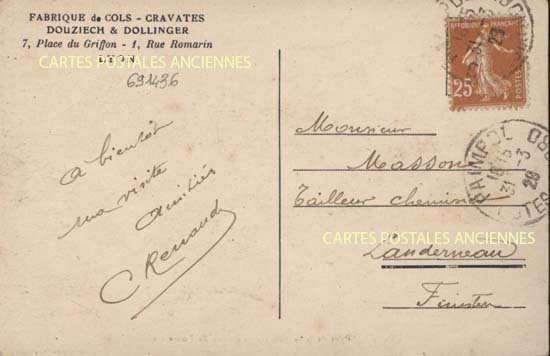 FABRIQUE de COLS - CRAVATES
DOUZIECH & DOLLINGER
7, Place du Griffon - 1, Rue Romarin
LYON
CARTES POSTALES ANCIENNES
691436
a bientôt
ma visite
Amitiés
C Renaud
REPUBLIQUE FRANÇAISE
25c
POSTES
PAIMPOL
31 -3
29
Monsieur
Masson
Tailleur Chemisier
CARTES POSTALES ANCIENNES
Landerneau
Finistère